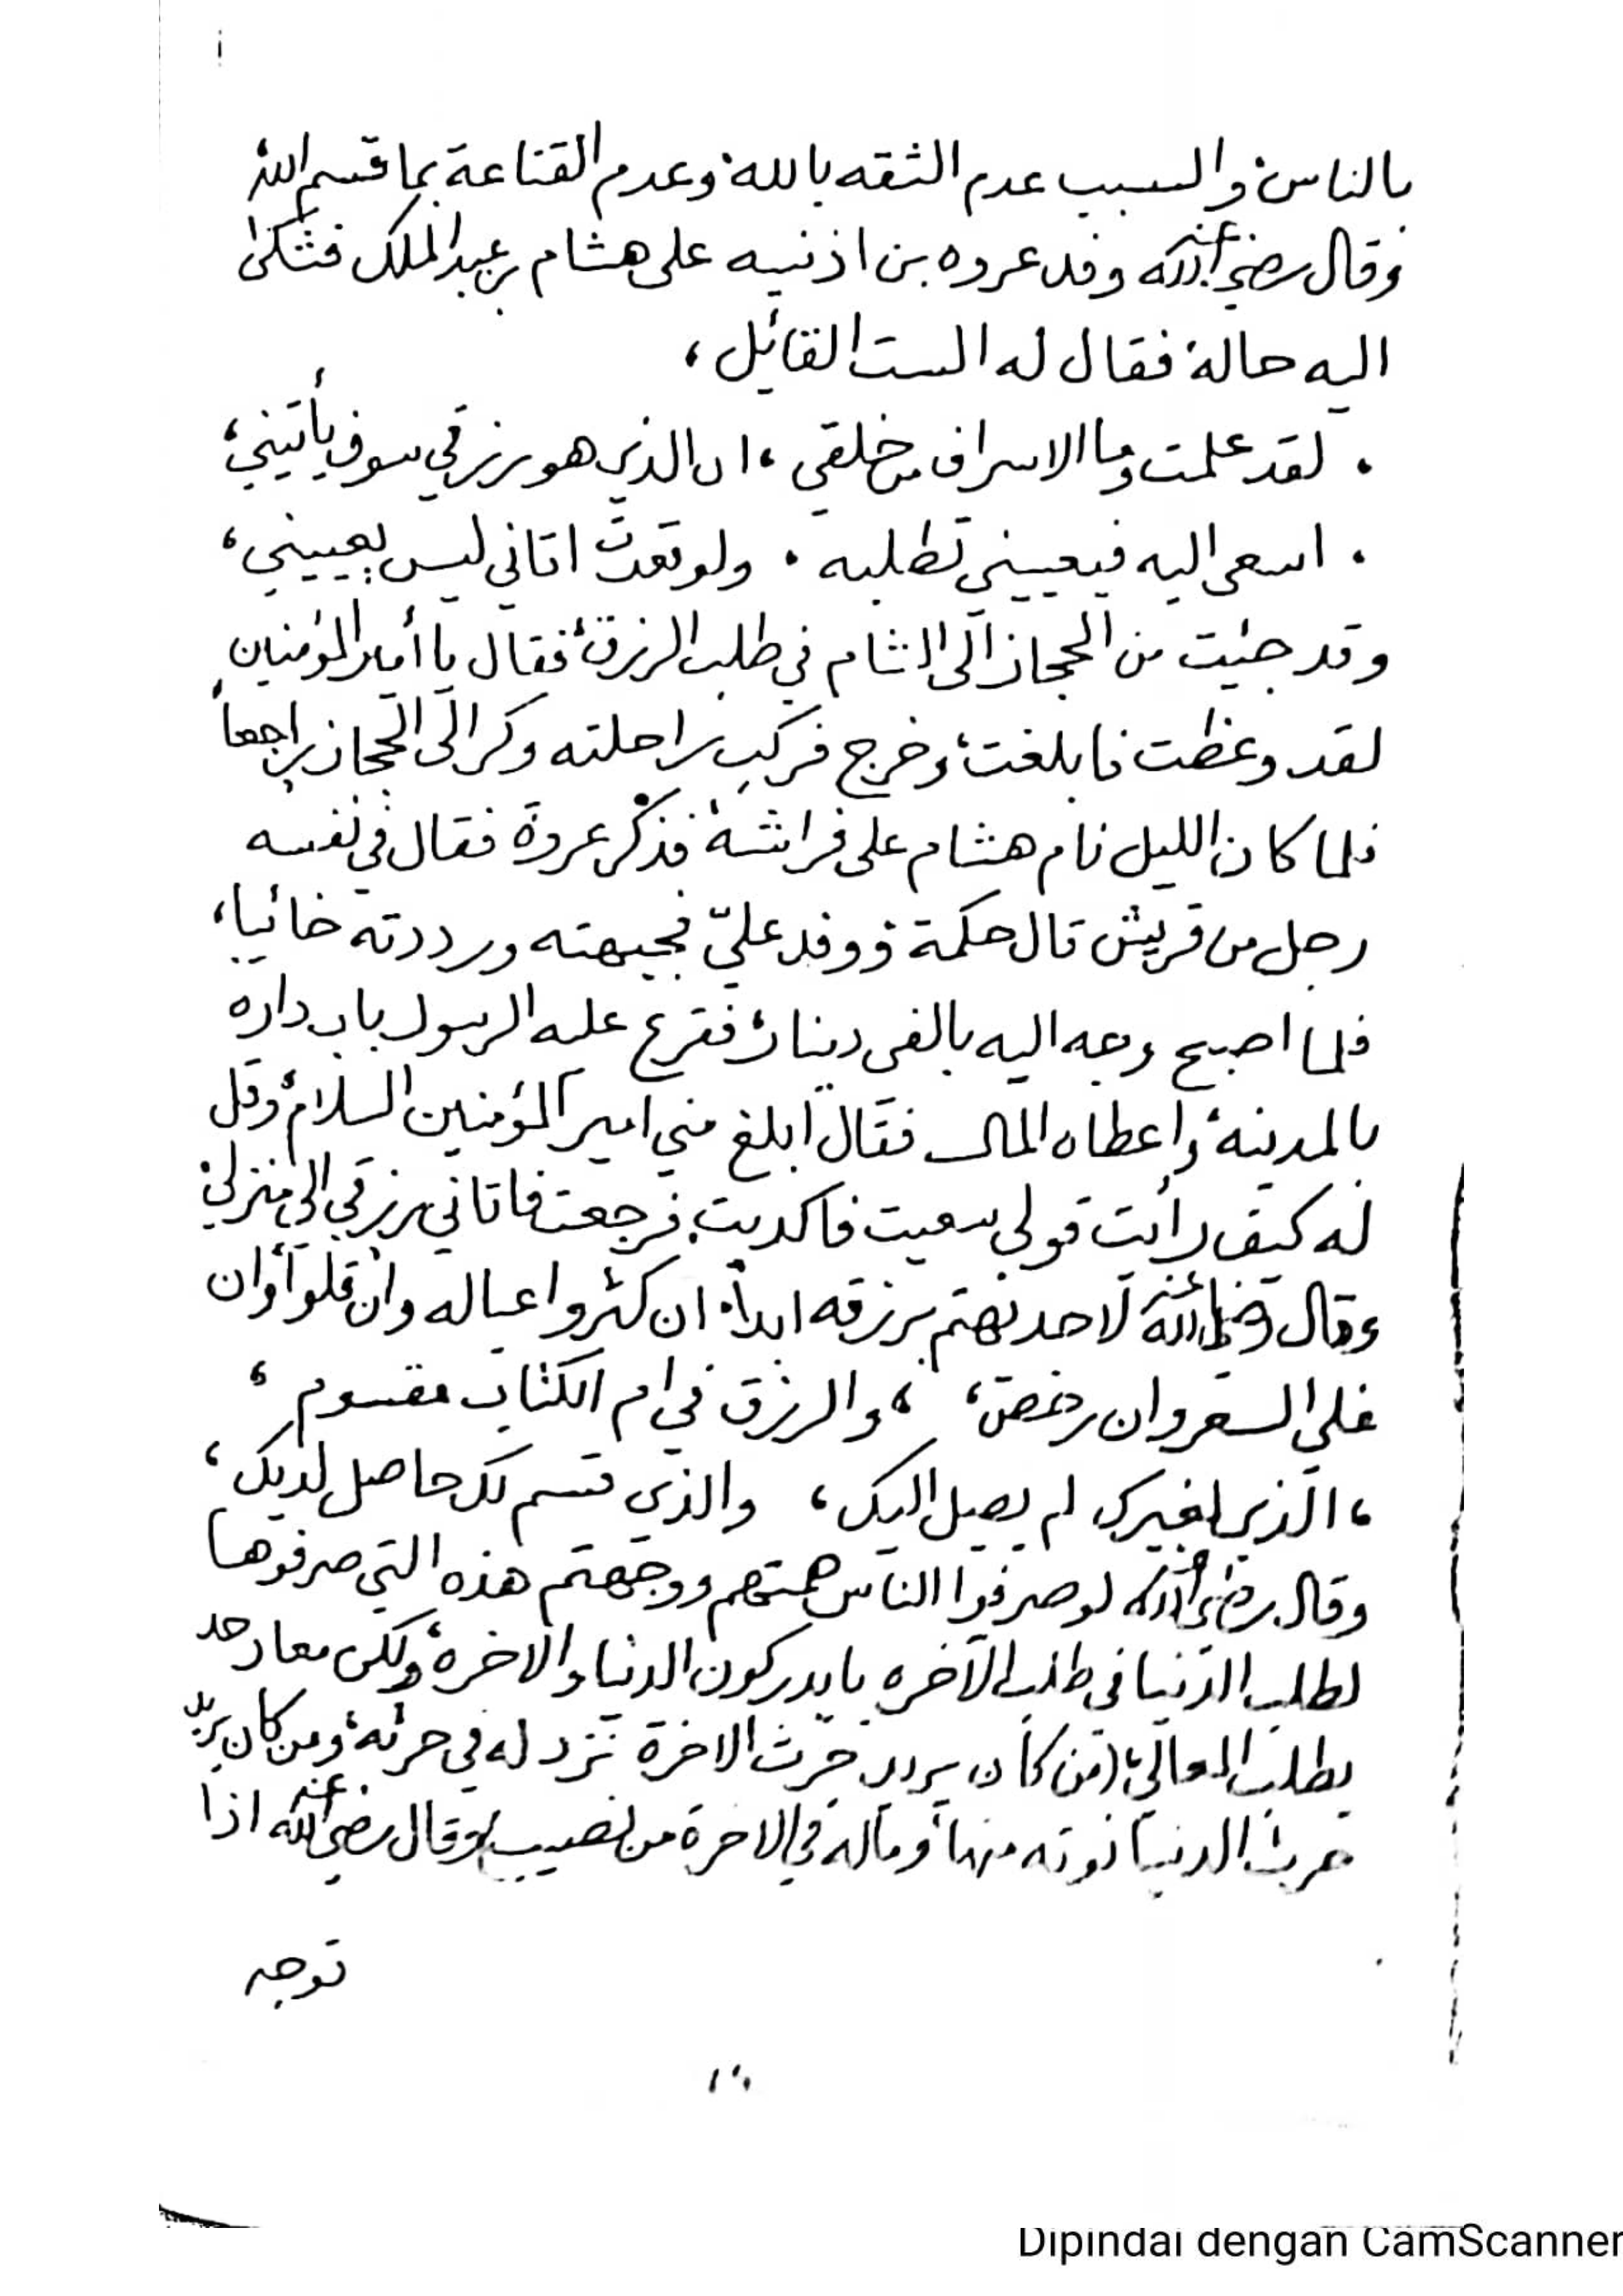 بالناس، والسبب عدم الثقه بالله، وعدم القناعة بما قسم الله،
وقال رضي الله عنه وفد عروه بن اذنيه على هشام بن عبد الملك فشكى
اليه حالة، فقال له الست القائل،
. لقد علمت وما الاسراف من خلقي ، ان الذي هو رزقي سوف يأتيني،
. اسعى اليه فيعييني تطلبه . ولو قعدت اتاني ليس يعييني،
وقد جئت من الحجاز الى الشام في طلب الرزق، فقال يا أمير المؤمنين
لقد وعظت فابلغت، وخرج فركب راحلته وكر الى الحجاز راجعاً
فلما كان الليل نام هشام على فراشة، فذكر عروة فقال في نفسه
رجل من قريش قال حكمة ووفد عليّ فجبهته ورددته خائبا،
فلما اصبح وجه اليه بالفى دينار، فقرع عليه الرسول باب داره
بالمدينة، واعطاه المال فقال ابلغ مني امير المؤمنين السلام، وقل
له كيف رأيت قولي سعيت فاكديت، فرجعت فاتاني رزقي الى منزلي،
وقال رضي الله عنه لاحد يهتم برزقه ابداً، ان كثروا عياله وان قلوا، وان
غلي السعر وان رخص، ، والرزق في ام الكتاب مقسوم ،
، الذي لغيرك لم يصل اليك، والذي قسم لك حاصل لديك،
وقال رضي الله عنه لو صرفوا الناس همتهم ووجهتهم هذه التي صرفوها
لطلب الدنيا في طلب الآخره يا يدركون الدنيا والاخره، ولكن معاد حد
يطلب المعالي، (من كان يريد حرث الاخرة نزد له في حرثه، ومن كان يريد
حرث الدنيا نوته منها، وماله في الاخرة من نصيب) وقال رضي الله عنه اذا
توجه
Dipindai dengan CamScanner